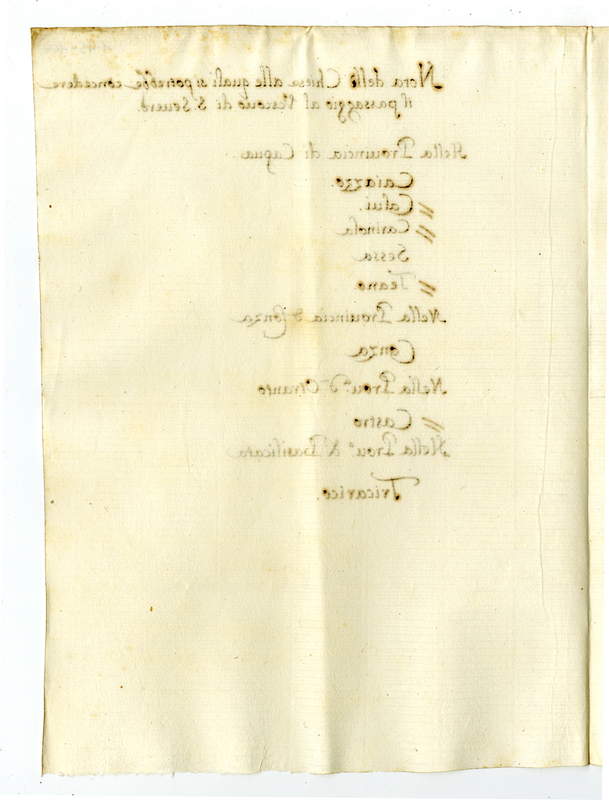 Nota delle Chiese alle quali si potrebbe concedere
il passaggio al Vescouo di S. Seuero.
Nella Prouincia di Capua.
Caiazzo.
// Calui.
// Carinola
Sessa
// Teano
Nella Prouincia d Conza
Conza
Nella Prou.ᵃ d'Otranto
// Castro
Nella Prou.ᵃ d Basilicata
Tricarico.